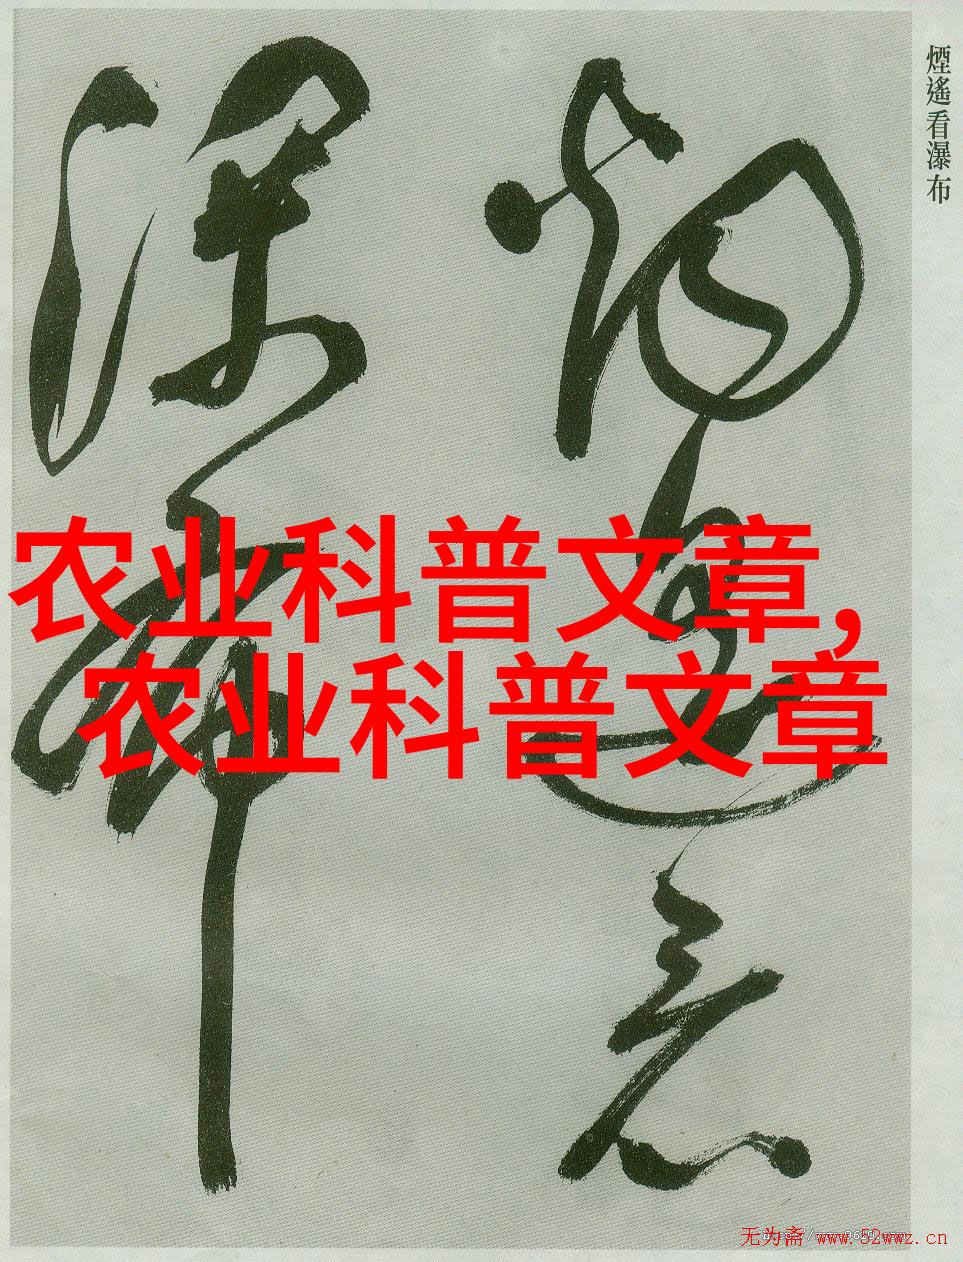 煙遙看瀑布
煙遙看
瀑布
农业科普文章,
农业科普文章
无为斋 www.52wwz.cn